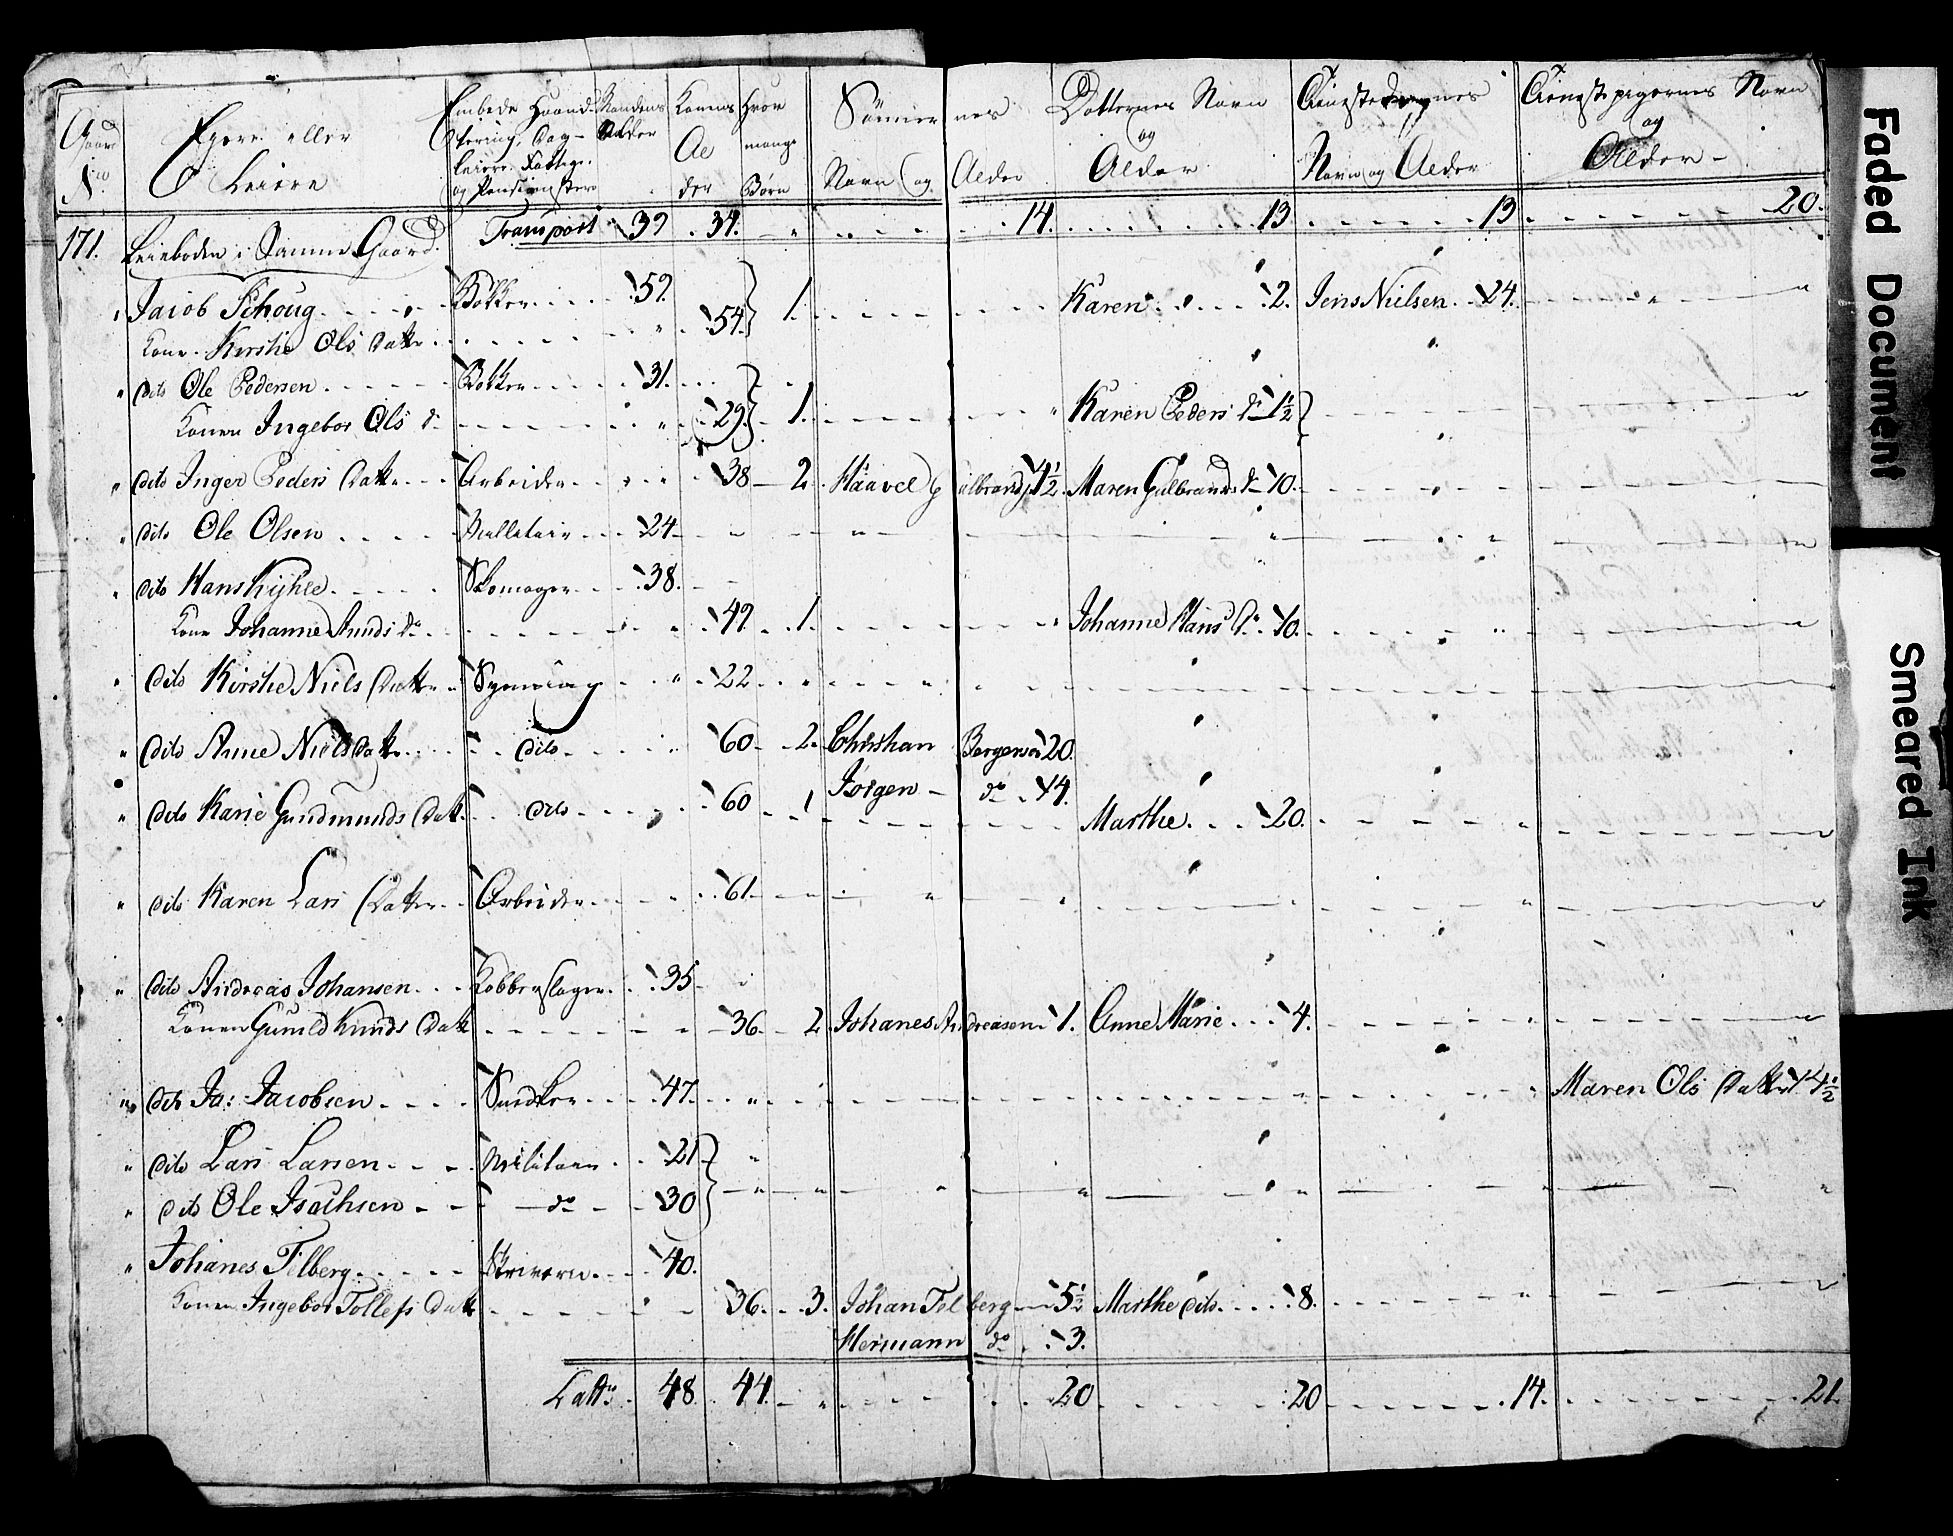 Gaard No | Eyere eller Leiere | Embede Haand-tering, Dag-leiere Fattige og Pensionister | Mandens Alder | Konens Alder | Hvor mange Børn | Sønnernes Navn og Alder | Dötternes Navn og Alder | Navn og Alder | Navn og Alder
Transport 39 34 14 13 13 20
171. Leieboden i Samme Gaard
Jacob Schoug Bökker 59. 1. Karen 2. Jens Nielsen 24.
Kone Kirstie Ols Datter 54
dito Ole Pedersen Bökker 31.
Konen Ingebor Ols dr 29. 1. Karen Peders dr 1½
dito Inger Peders Datter Arbeider 38 2 Haavel Gulbrands 4½ Maren Gulbrands dr 10.
dito Ole Olsen 24
dito Hans Skomager 38.
Kone Johanne Amds dr 49 1. Johanne Hans dr 10.
dito Kirstie Niels Datter Syening 22
dito Anne Niels Datter dito 60 2. Christian Bergersen 20.
Jörgen do 14.
dito Karie Gundmunds Datt. dito 60 1 Marthe 20.
dito Karen Lars Datter Arbeider 61
dito Andreas Johansen Kobberslager 35
Konen Gunild Knuds Datt 36 2 Johanes Andreasen 1. Anne Marie 4.
dito Ja: Jacobsen Snedker 47. Maren Ols Datter 14½
dito Lars Larsen Militair 21
dito Ole Isachsen do 30
Johanes Felberg Skriver 40.
Konen Ingebor Tollefs Datt 36. 3. Johan Felberg 5½ Marthe dito 8.
Hermann do 3.
Latt: 48 44 20 20 14. 21.
Faded Document
Smeared Ink